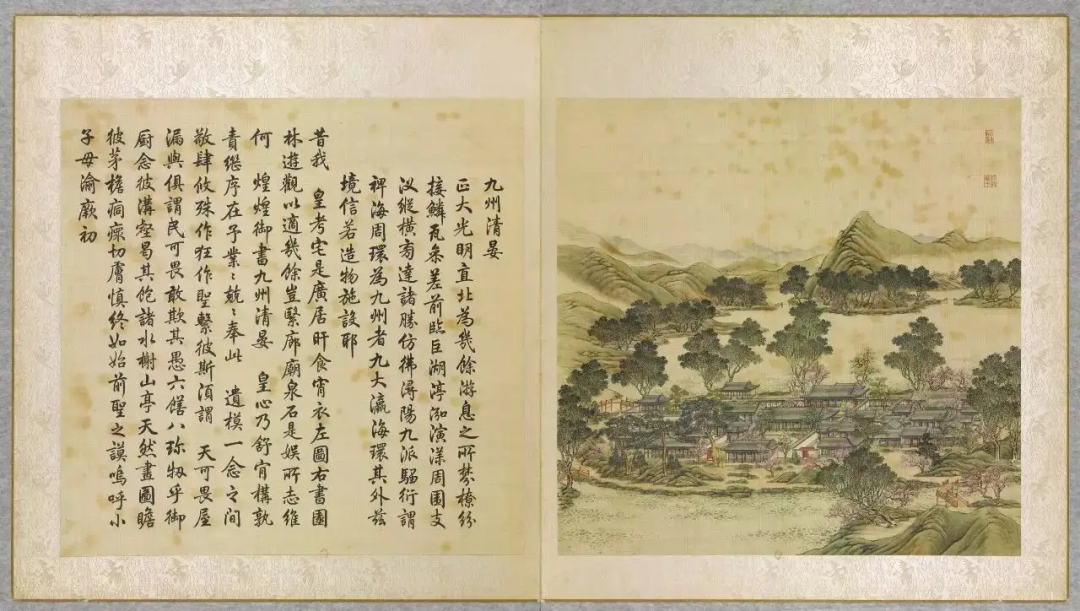 九州清晏
正大光明直北為幾餘游息之所棼橑紛
接鱗瓦參差前臨巨湖渟泓演漾周圍支
汊縱橫旁達諸勝仿彿潯陽九派騶衍謂
裨海周環為九州者九大瀛海環其外茲
境信若造物施設耶
昔我 皇考宅是廣居旰食宵衣左圖右書園
林遊觀以適幾餘豈繄廊廟泉石是娛所志維
何 煌煌御書九州清晏 皇心乃舒肯構孰
責繼序在予業〻兢〻奉此 遺模一念之間
敬肆攸殊作狂作聖繫彼斯須謂 天可畏屋
漏與俱謂民可畏敢欺其愚六膳八珍牣乎御
廚念彼溝壑曷其飽諸水榭山亭天然畫圖瞻
彼茅檐痌瘝切膚慎終如始前聖之謨嗚呼小
子毋渝厥初